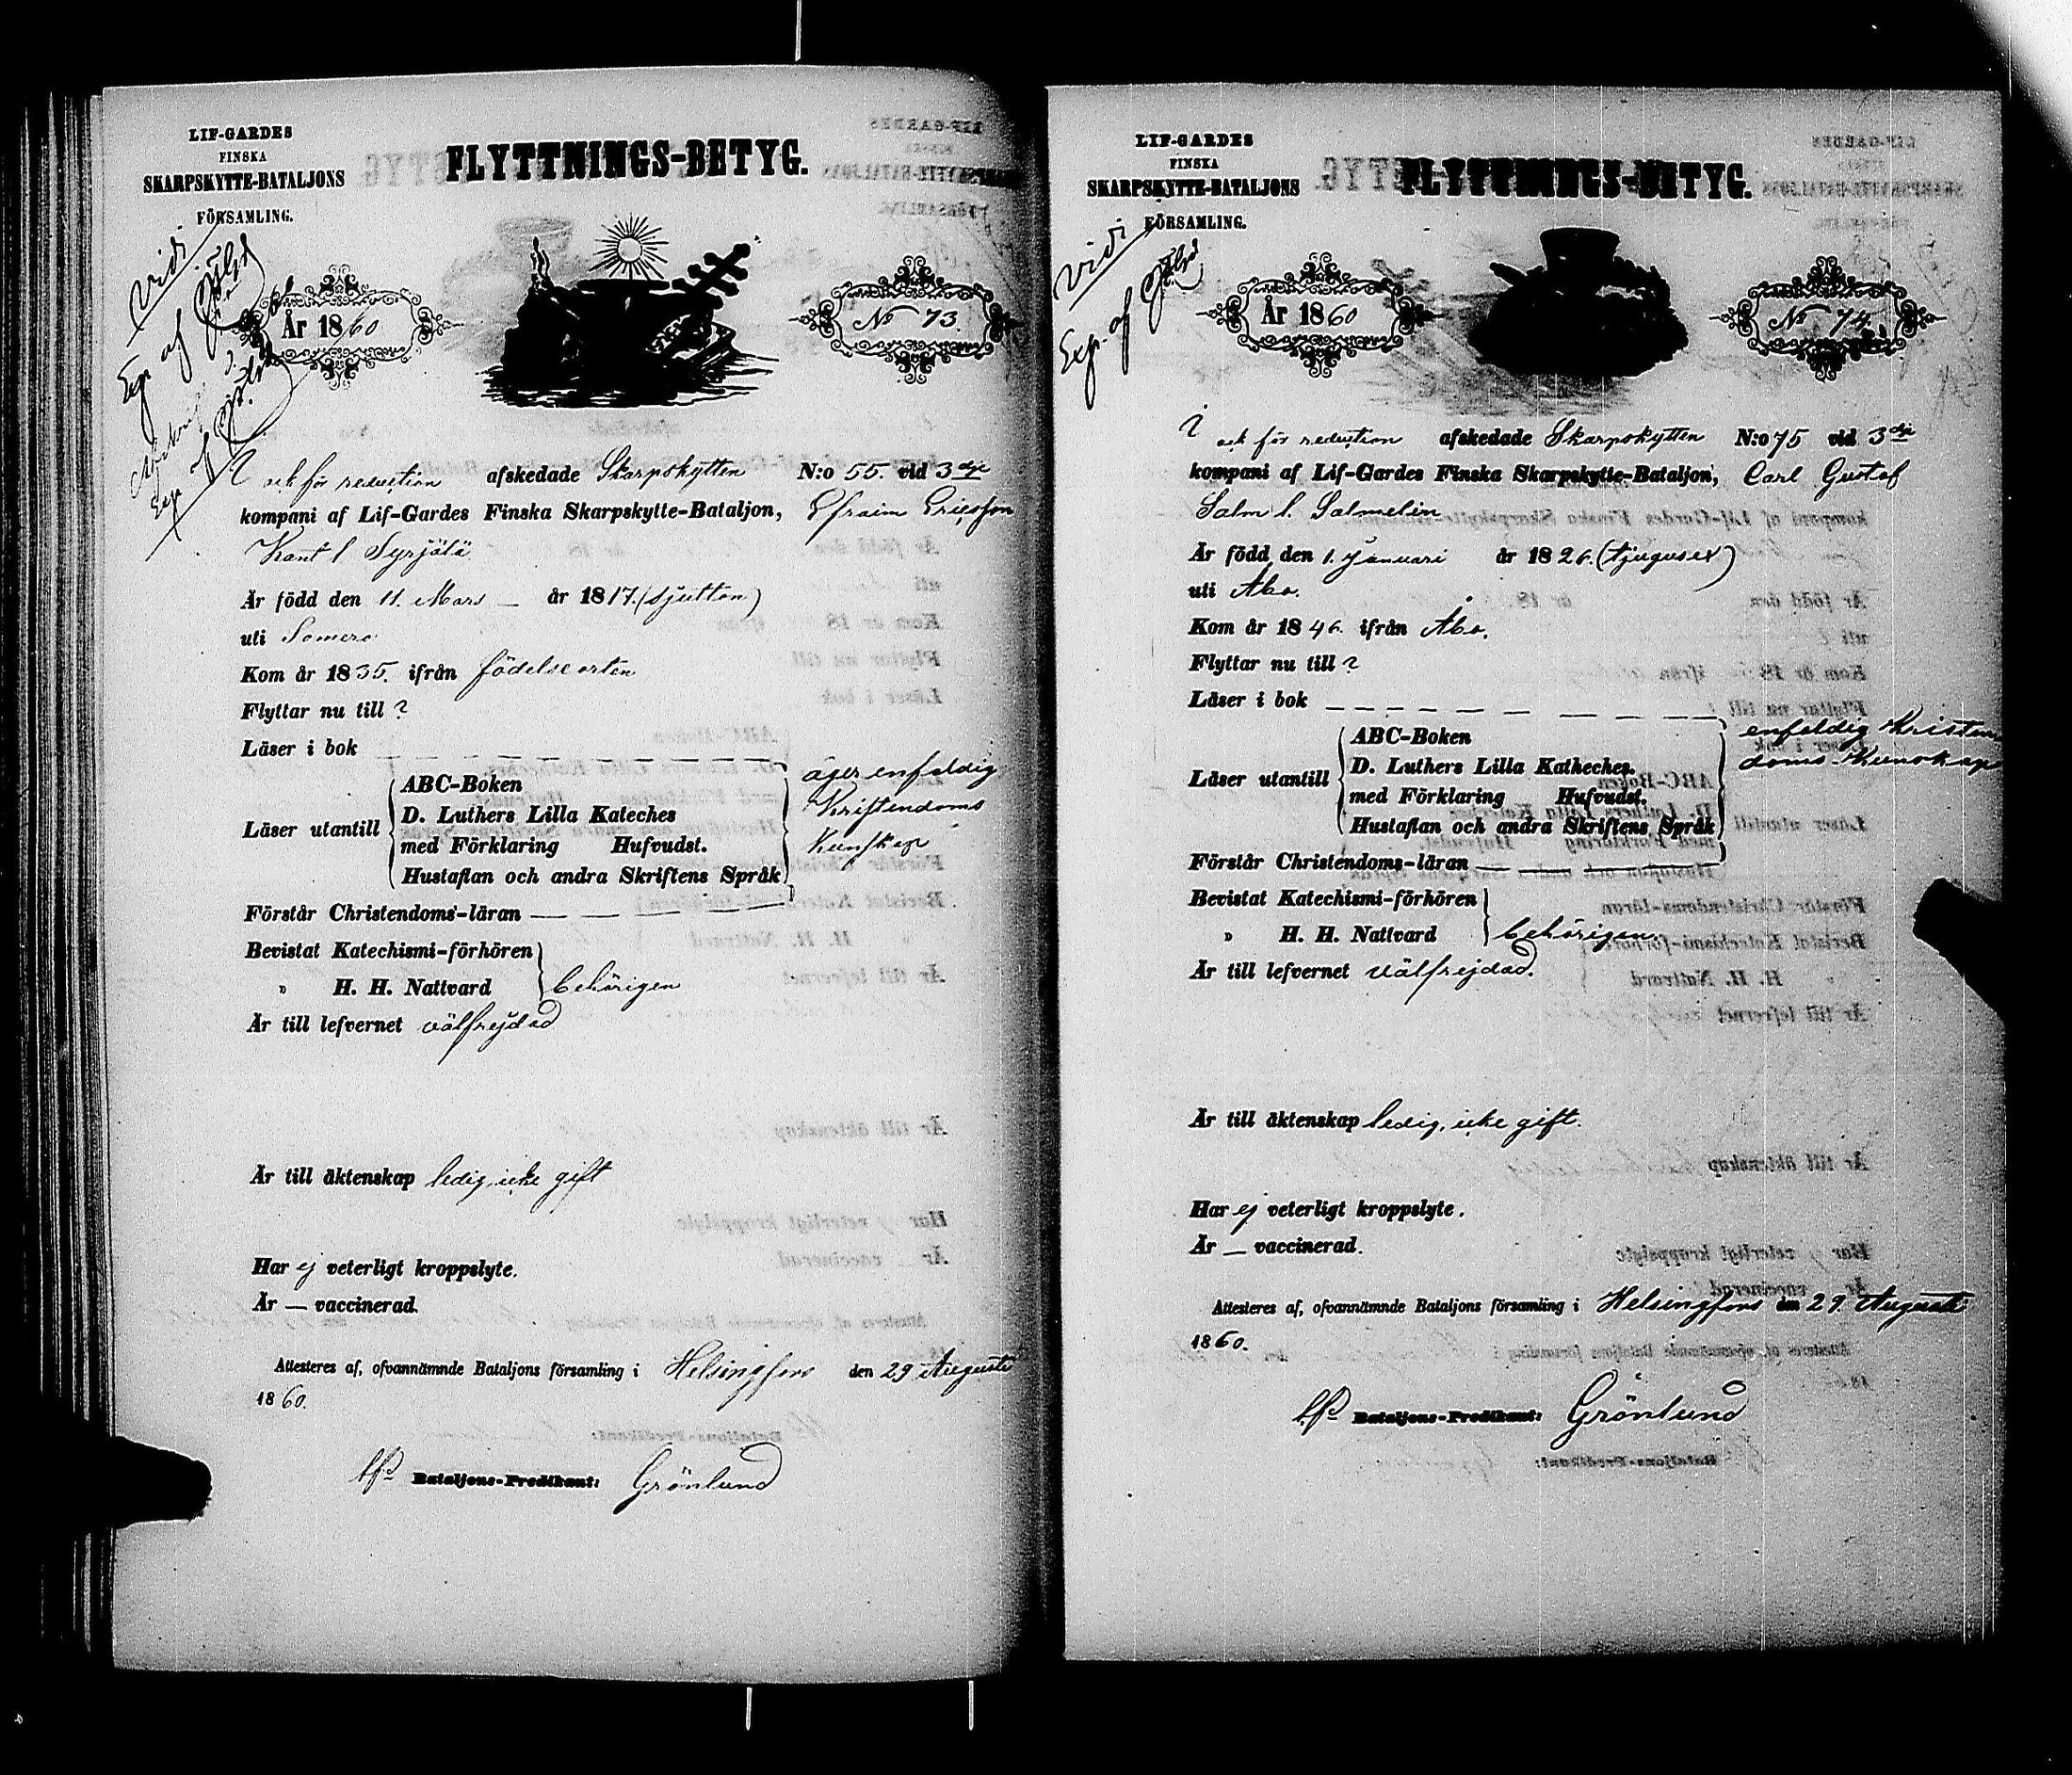 LIF-GARDES
FINSKA
SKARPSKYTTE-BATALJONS
FÖRSAMLING.
FLYTTNINGS-BETYG.
vidi
Exp. af
År 1860
No 73.
I och för reduction afskedade Skarpskytten N:o 55 vid 3dje
kompani af Lif-Gardes Finska Skarpskytte-Bataljon, Efraim Ericsson
Kant l Syrjälä
Är född den 11. Mars — år 1817. (sjutton)
uti Somero
Kom år 1835. ifrån födelseorten
Flyttar nu till ?
Läser i bok
Läser utantill
ABC-Boken
D. Luthers Lilla Kateches
med Förklaring Hufvudst.
Hustaflan och andra Skriftens Språk
äger enfaldig
Kristendoms
Kunskap
Förstår Christendoms-läran
Bevistat Katechismi-förhören
" H. H. Nattvard
behörigen
Är till lefvernet välfrejdad
Är till äktenskap ledig, icke gift
Har ej veterligt kroppslyte.
Är — vaccinerad.
Attesteras af, ofvannämnde Bataljons församling i Helsingfors den 29 Augusti
1860.
Bataljons-Predikant: Grönlund
LIF-GARDES
FINSKA
SKARPSKYTTE-BATALJONS
FÖRSAMLING.
FLYTTNINGS-BETYG.
vidi
Exp. af
År 1860
No 74.
I och för reduction afskedade Skarpskytten N:o 75 vid 3dje
kompani af Lif-Gardes Finska Skarpskytte-Bataljon, Carl Gustaf
Salm l. Salmelin
Är född den 1. Januari år 1826. (tjugusex)
uti Åbo.
Kom år 1846. ifrån Åbo.
Flyttar nu till ?
Läser i bok
Läser utantill
ABC-Boken
D. Luthers Lilla Katheches.
med Förklaring Hufvudst.
Hustaflan och andra Skriftens Språk
enfaldig Kristen
doms Kunskap
Förstår Christendoms-läran
Bevistat Katechismi-förhören
" H. H. Nattvard
behörigen.
Är till lefvernet välfrejdad.
Är till äktenskap ledig, icke gift.
Har ej veterligt kroppslyte.
Är — vaccinerad.
Attesteras af, ofvannämnde Bataljons församling i Helsingfors den 29. Augusti
1860.
Bataljons-Predikant: Grönlund